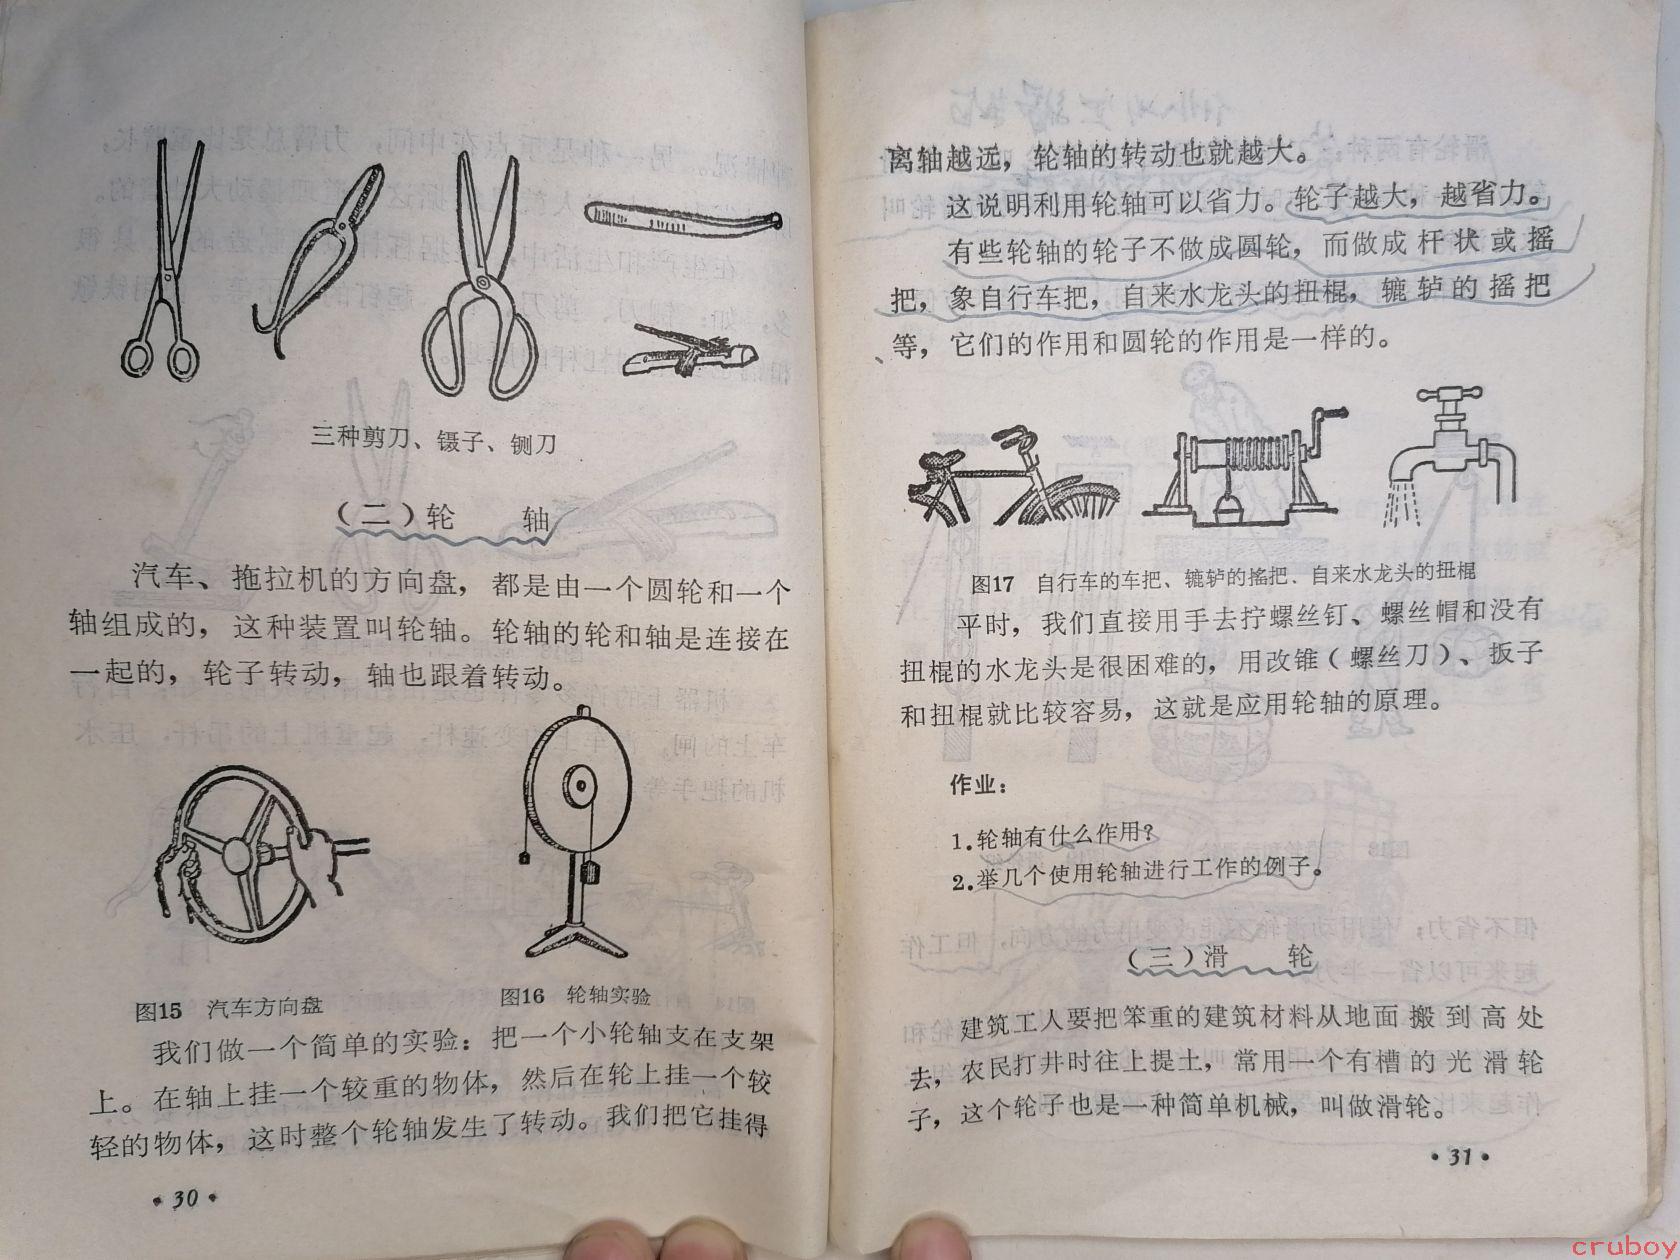 三种剪刀、镊子、铡刀
（二）轮　轴
汽车、拖拉机的方向盘，都是由一个圆轮和一个
轴组成的，这种装置叫轮轴。轮轴的轮和轴是连接在
一起的，轮子转动，轴也跟着转动。
图15　汽车方向盘
图16　轮轴实验
我们做一个简单的实验：把一个小轮轴支在支架
上。在轴上挂一个较重的物体，然后在轮上挂一个较
轻的物体，这时整个轮轴发生了转动。我们把它挂得
·30·
离轴越远，轮轴的转动也就越大。
这说明利用轮轴可以省力。轮子越大，越省力。
有些轮轴的轮子不做成圆轮，而做成杆状或摇
把，象自行车把，自来水龙头的扭棍，辘轳的摇把
等，它们的作用和圆轮的作用是一样的。
图17　自行车的车把、辘轳的摇把、自来水龙头的扭棍
平时，我们直接用手去拧螺丝钉、螺丝帽和没有
扭棍的水龙头是很困难的，用改锥（螺丝刀）、扳子
和扭棍就比较容易，这就是应用轮轴的原理。
作业：
1.轮轴有什么作用？
2.举几个使用轮轴进行工作的例子。
（三）滑　轮
建筑工人要把笨重的建筑材料从地面搬到高处
去，农民打井时往上提土，常用一个有槽的光滑轮
子，这个轮子也是一种简单机械，叫做滑轮。
·31·
cruboy